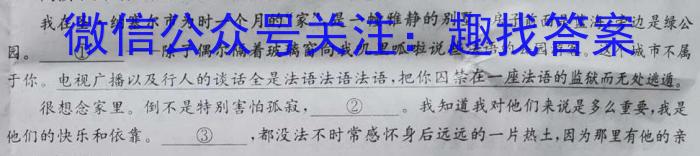 我在 塞尔市为时一个月的"家"是一 雅静的别墅,房子 是绿公
园。 ① 除了偶尔隔着玻璃窗向我
微信公众号关注:趣找答案
个城市不属
于你。电视广播以及行人的谈话全是法语法语法语,把你囚禁在一座法语的监狱而无处逃遁。
很想念家里。倒不是特别害怕孤寂, ② 。我知道我对他们来说是多么重要,我是
他们的快乐和依靠。 ③ ,都没法不时常感怀身后远远的一片热土,因为那里有他的亲